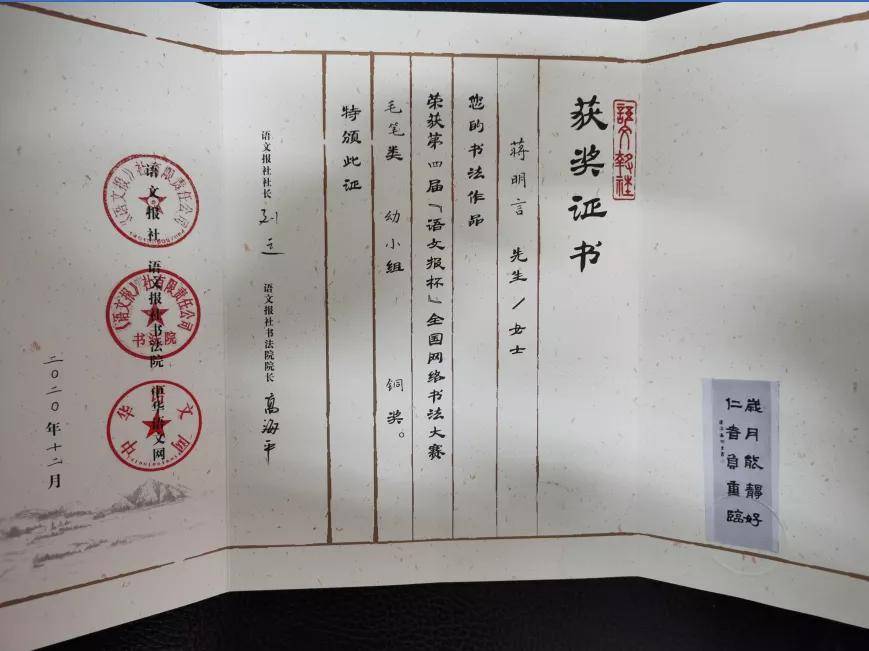 语文报社
获奖证书
蒋明言 先生/女士
您的书法作品
荣获第四届“语文报杯”全国网络书法大赛
毛笔类 幼小组 铜奖。
特颁此证
语文报社社长
语文报社书法院院长 高海平
语文报社 语文报社书法院 中华语文网
《语文报》社有限责任公司
《语文报》社有限责任公司
书法院
中华语文网
二〇二〇年十二月
歲月能靜好
仁者負重臨